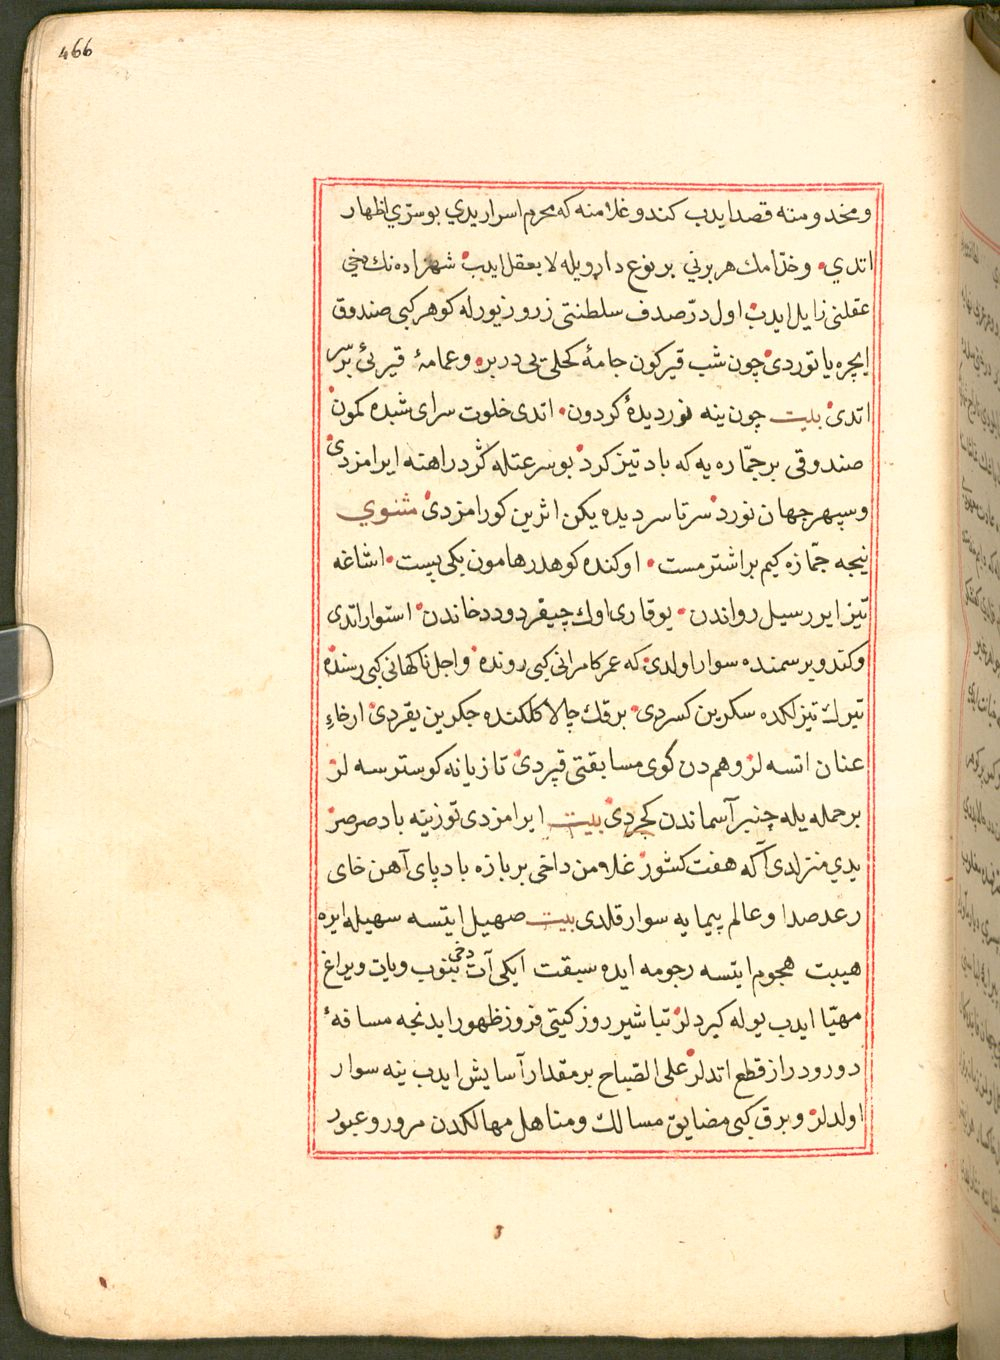 466
ومخدومنه قصد ايدب كندو غلامنه كه محرم اسرار يدي بو سرّي اظهار
اتدي وخدّامك هر برني بر نوع دارويله لا يعقل ايدب شهزاده نك دخي
عقلني زايل ايدب اول درّ صدف سلطنتى زر و زيور له كوهر كبى صندوق
ايچره ياتوردى چون شب قيركون جامهٔ كحلى در بر وعمامهٔ قيرئ بر سر
اتدى بيت چون ينه نور ديدهٔ كردون اتدى خلوت سراى شبده كمون
صندوقى بر جمّازه يه كه باد تيز كرد بو سرعتله كرد راهنه ايرامزدى
وسپهر جهان نورد سرتاسر ديده يكن اثرين كورامزدى مثنوي
نيجه جمّازه كيم بر اشتر مست اوكنده كوهلر هامون يكى پست اشاغه
تيز ايرر سيل رواندن يوقارى اوك چيقر دود دخاندن استوار اتدى
وكندو بر سمنده سوار اولدى كه عمر كامرانى كبى رونده واجل ناكهانى كبى رسنده
تيرك تيزلكده سكرين كسردى برقك چالاكلكنده جكرين يقردى ارخاء
عنان اتسه لر وهمدن كوى مسابقتى قپردى تازيانه كوسترسه لر
بر حمله يله چنبر آسماندن كچردى بيت ايرامزدى توزينه باد صرصر
يدي منزلدى اكا هفت كشور غلامن داخى بر يازه باد پاى آهن خاى
رعد صدا وعالم پيمايه سوار قلدى بيت صهيل ايتسه سهيله ايره
هيبت هجوم ايتسه رجومه ايده سبقت ايكى آت دخى بينوب ويات ويراغ
مهيّا ايدب يوله كيردلر تباشير روز كيتى فروز ظهور ايدنجه مسافهٔ
دور ودراز قطع اتدلر على الصّباح بر مقدار آسايش ايدب ينه سوار
اولدلر وبرق كبى مضايق مسالك ومناهل مهالكدن مرور وعبور